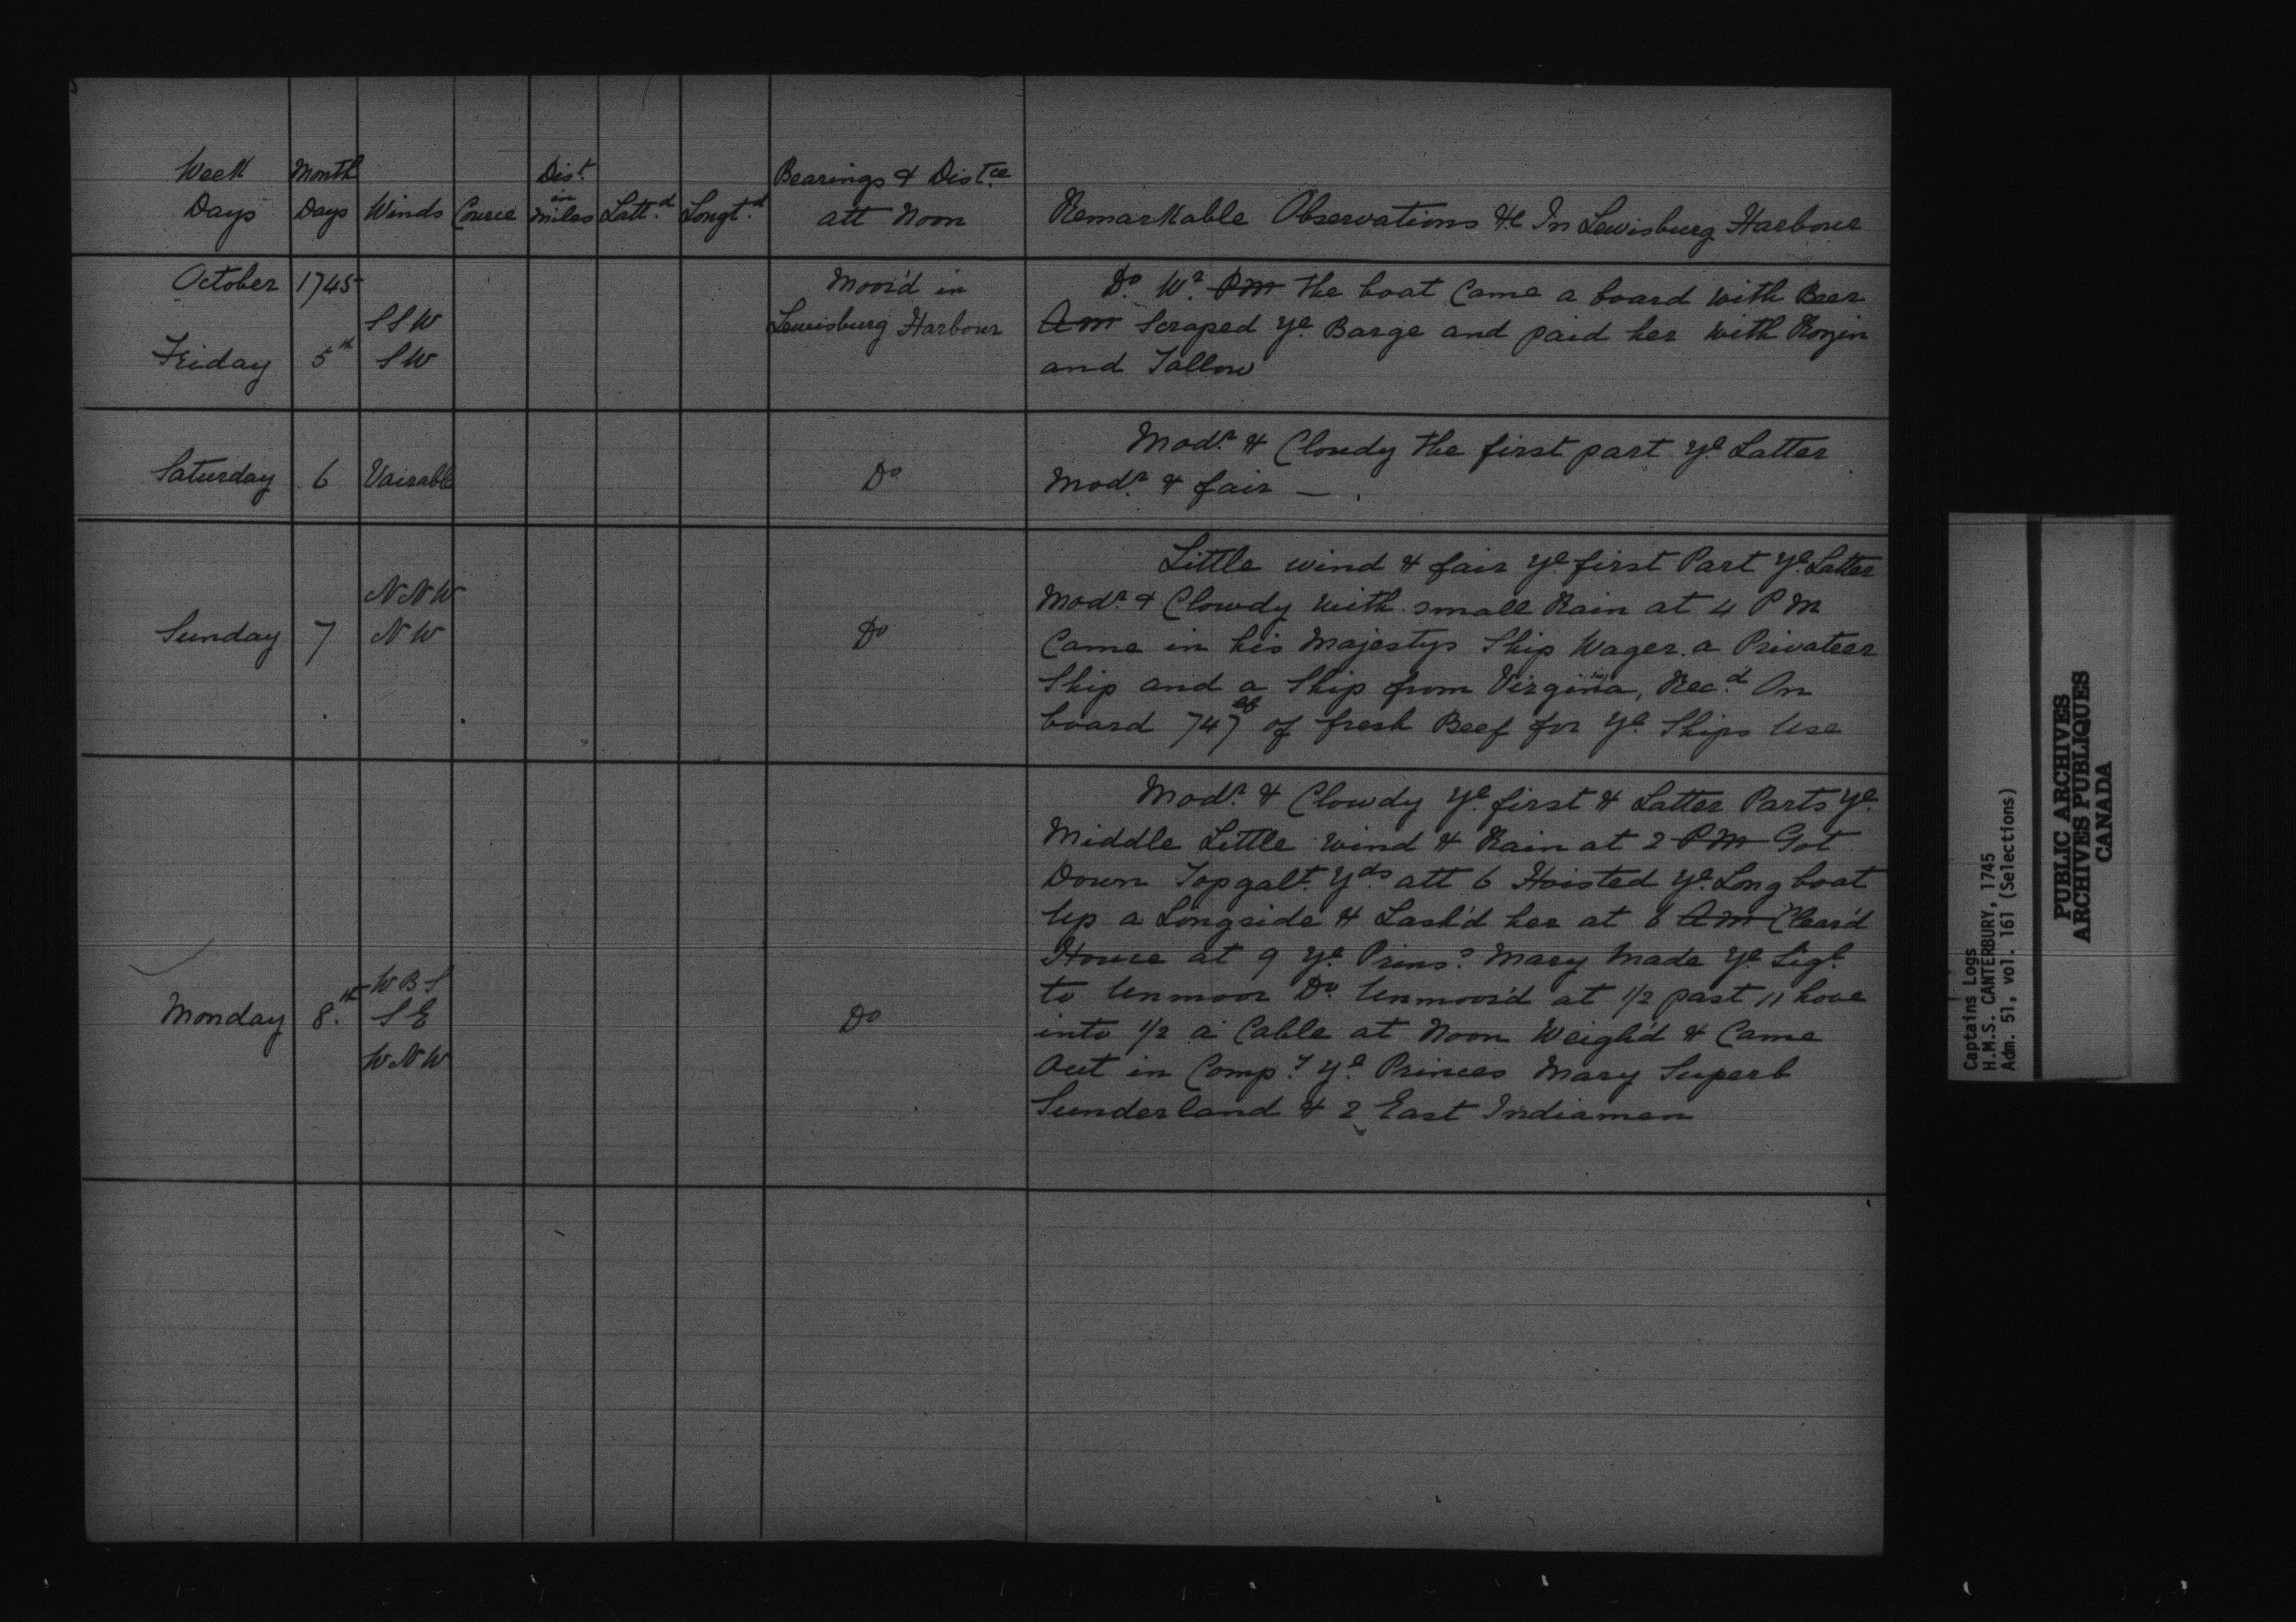 Week Month Dist. Bearings & Dist.ce
Days Days Winds Cource in miles Latt.d Longt.d att Noon Remarkable Observations &c In Lewisburg Harbour
October 1745 Moor'd in Lewisburg Harbour
Friday 5th SSW SW
Do. Wr. PM the boat Came a board with Beer
AM Scraped ye Barge and paid her with Rozin
and Tallow
Saturday 6 Vairable Do
Modr. & Cloudy the first part ye Latter
Modr. & fair —
Sunday 7 NNW NW Do
Little wind & fair ye first Part ye Latter
Modr. & Clowdy with small Rain at 4 PM
Came in his Majestys Ship Wager a Privateer
Ship and a Ship from Virginia, Rec.d On
board 747 of fresh Beef for ye Ships Use
Monday 8.th WBS SE WNW Do
Modr. & Clowdy ye first & Latter Parts ye
Middle Little wind & Rain at 2 PM Got
Down Topgalt. Yds. att 6 Hoisted ye Long boat
Up a Longside & Lash'd her at 6 AM Clear'd
Hawse at 9 ye Prins.s Mary Made ye Sigl.
to Unmoor Do. Unmoor'd at 1/2 past 11 hove
into 1/2 a Cable at Noon Weigh'd & Came
Out in Comp.y ye Princes Mary Superb
Sunderland & 2 East Indiamen
Captains Logs
H.M.S. CANTERBURY, 1745
Adm. 51, vol. 161 (Selections)
PUBLIC ARCHIVES
ARCHIVES PUBLIQUES
CANADA